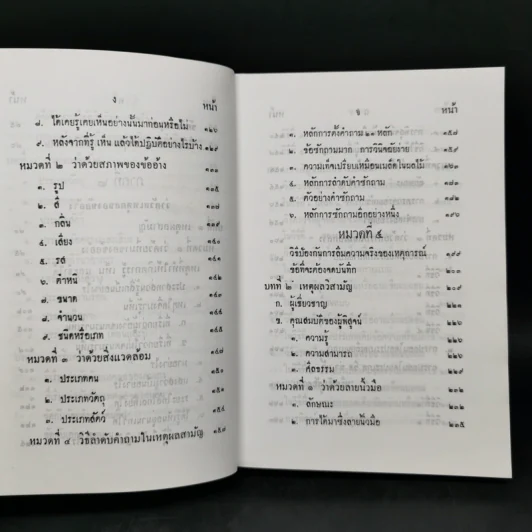 ง
หน้า
๘. ได้เคยรู้เคยเห็นอย่างนั้นมาก่อนหรือไม่ ๑๒๖
๙. หลังจากที่รู้ เห็น แล้วได้ปฏิบัติอย่างไรบ้าง ๑๒๙
หมวดที่ ๒ ว่าด้วยสภาพของข้ออ้าง
๑. รูป ๑๓๕
๒. สี ๑๓๗
๓. กลิ่น
๔. เสียง
๕. รส
๖. ตำหนิ
๗. ขนาด
๘. จำนวน
๙. ชนิดหรือเภท
หมวดที่ ๓ ว่าด้วยสิ่งแวดล้อม
๑. ประเภทคน
๒. ประเภทวัตถุ
๓. ประเภทสัตว์
หมวดที่ ๔ วิธีลำดับคำถามในเหตุผลสามัญ
จ
หน้า
๑. หลักการตั้งคำถาม ๒๑ หลัก ๑๕๘
๒. ข้อซักถามมาก การวินิจฉัยง่าย
๓. ความเท็จเปรียบเหมือนเมล็ดในผลไม้ ๑๖๓
๔. หลักการลำดับคำซักถาม
๕. ตัวอย่างคำซักถาม
๖. หลักการซักถามอีกอย่างหนึ่ง ๑๙๖
หมวดที่ ๕
วิธีป้องกันการดิ้นความจริงของเหตุการณ์ ๑๙๙
ข้อที่จะต้องจดบันทึก
บทที่ ๒ เหตุผลวิสามัญ ๒๐๙
ก. ผู้เชี่ยวชาญ
ข. คุณสมบัติของผู้พิสูจน์ ๒๒๖
๑. ความรู้ ๒๒๖
๒. ความสามารถ
๓. ศีลธรรม ๒๒๙
หมวดที่ ๑ ว่าด้วยลายนิ้วมือ ๒๓๒
๑. ลักษณะ
๒. การได้มาซึ่งลายนิ้วมือ ๒๓๕